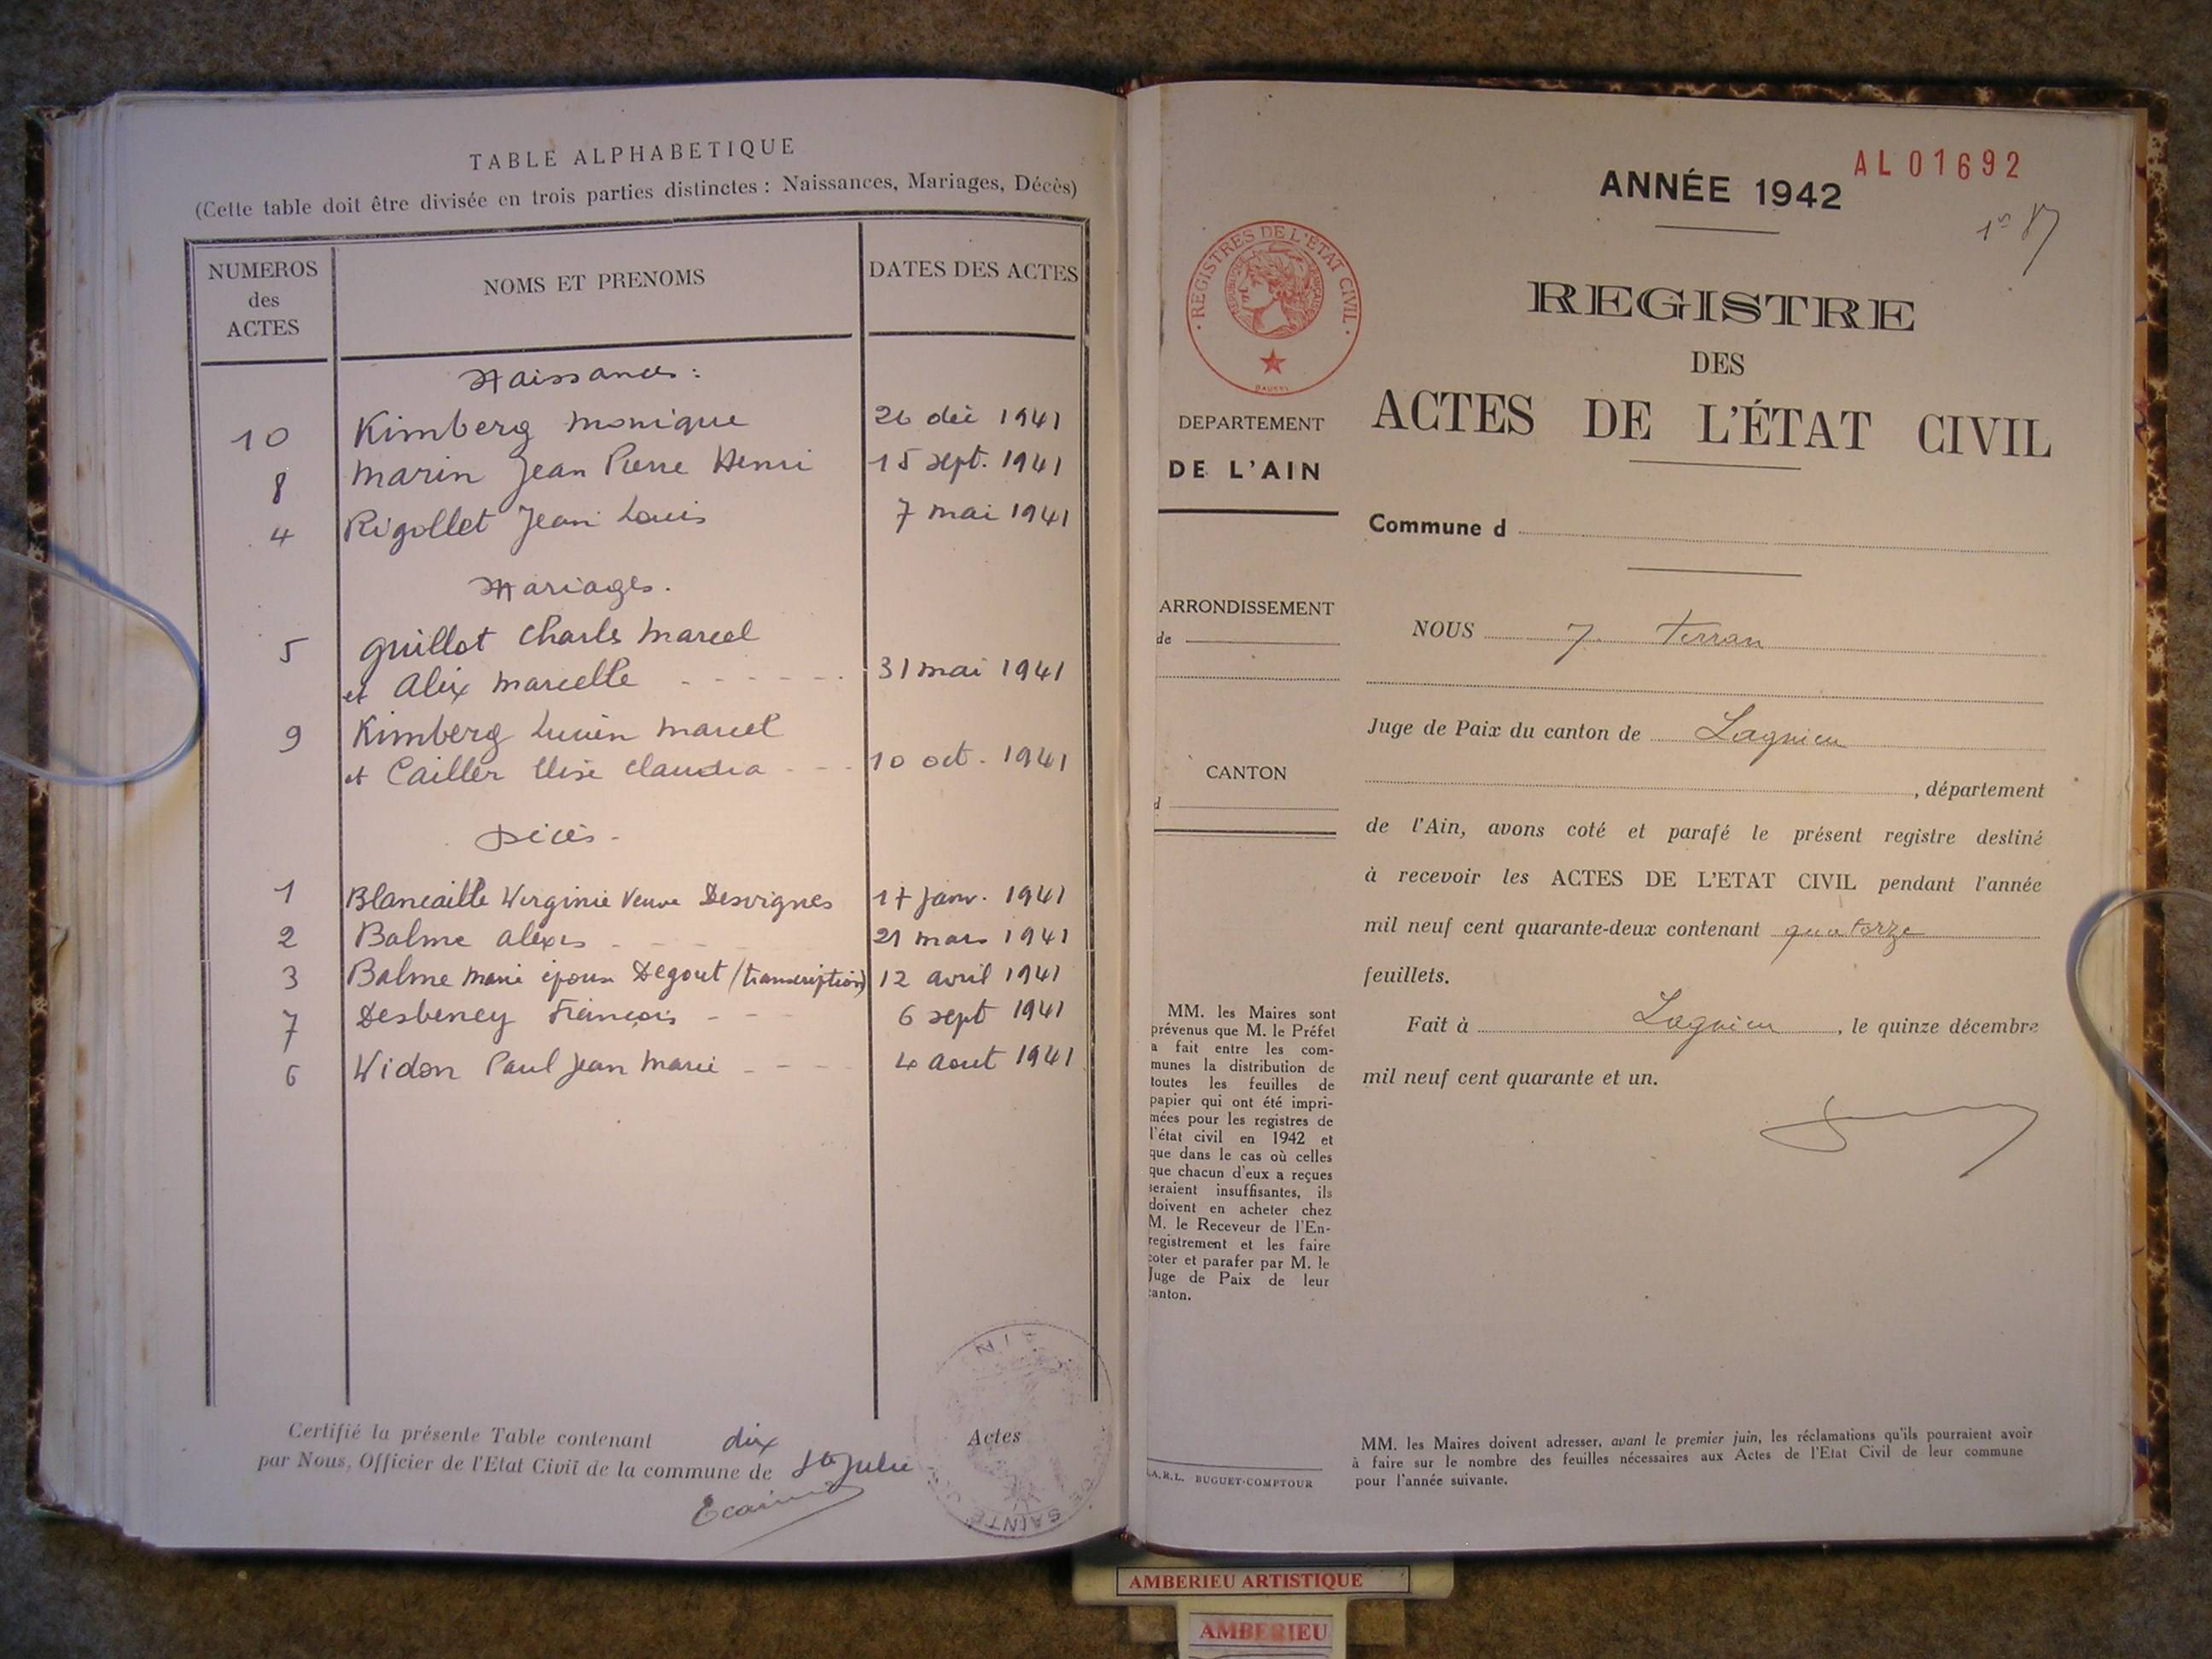 TABLE ALPHABETIQUE
(Cette table doit être divisée en trois parties distinctes : Naissances, Mariages, Décès)
NUMEROS des ACTES NOMS ET PRENOMS DATES DES ACTES
Naissances :
10 Kimberg Monique 26 déc 1941
8 Marin Jean Pierre Henri 15 sept. 1941
4 Rigollet Jean Louis 7 mai 1941
Mariages.
5 Guillot Charles Marcel
et Alix Marcelle - - - - - - 31 mai 1941
9 Kimberg Lucien Marcel
et Cailler Elise Claudia - - - 10 oct. 1941
Décès -
1 Blancaille Virginie Veuve Desvignes 17 janv. 1941
2 Balme Alexis - - - - 21 mars 1941
3 Balme Marie épouse Degout (transcription) 12 avril 1941
7 Desbeney François - - - 6 sept 1941
6 Vidon Paul Jean Marie - - - - 4 aout 1941
Certifié la présente Table contenant dix Actes
par Nous, Officier de l'Etat Civil de la commune de Ste Julie
AIN
SAINTE
ANNÉE 1942
AL01692
REGISTRES DE L'ETAT CIVIL
REGISTRE
DES
ACTES DE L'ÉTAT CIVIL
DEPARTEMENT
DE L'AIN
Commune d
ARRONDISSEMENT
de
CANTON
d
NOUS J. Ferran
Juge de Paix du canton de Lagnieu
, département
de l'Ain, avons coté et parafé le présent registre destiné
à recevoir les ACTES DE L'ETAT CIVIL pendant l'année
mil neuf cent quarante-deux contenant quatorze
feuillets.
Fait à Lagnieu, le quinze décembre
mil neuf cent quarante et un.
MM. les Maires sont
prévenus que M. le Préfet
a fait entre les com-
munes la distribution de
toutes les feuilles de
papier qui ont été impri-
mées pour les registres de
l'état civil en 1942 et
que dans le cas où celles
que chacun d'eux a reçues
seraient insuffisantes, ils
doivent en acheter chez
M. le Receveur de l'En-
registrement et les faire
coter et parafer par M. le
Juge de Paix de leur
canton.
S.A.R.L. BUGUET-COMPTOUR
MM. les Maires doivent adresser, avant le premier juin, les réclamations qu'ils pourraient avoir
à faire sur le nombre des feuilles nécessaires aux Actes de l'Etat Civil de leur commune
pour l'année suivante.
AMBERIEU ARTISTIQUE
AMBERIEU